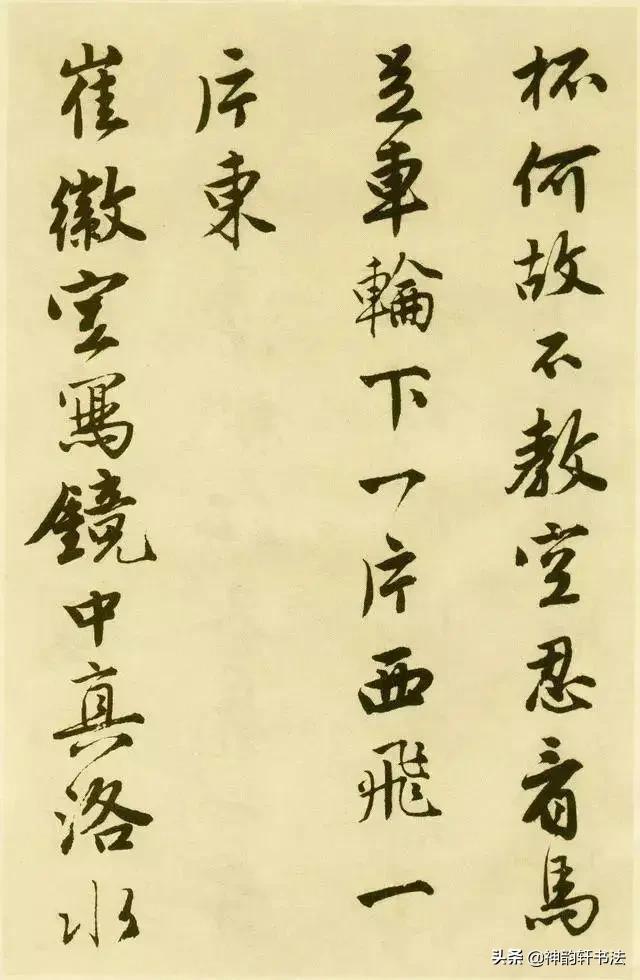 杯何故不教空忍看馬
足車輪下一片西飛一
片東
崔徽空寫鏡中真洛水
头条 @神韵轩书法